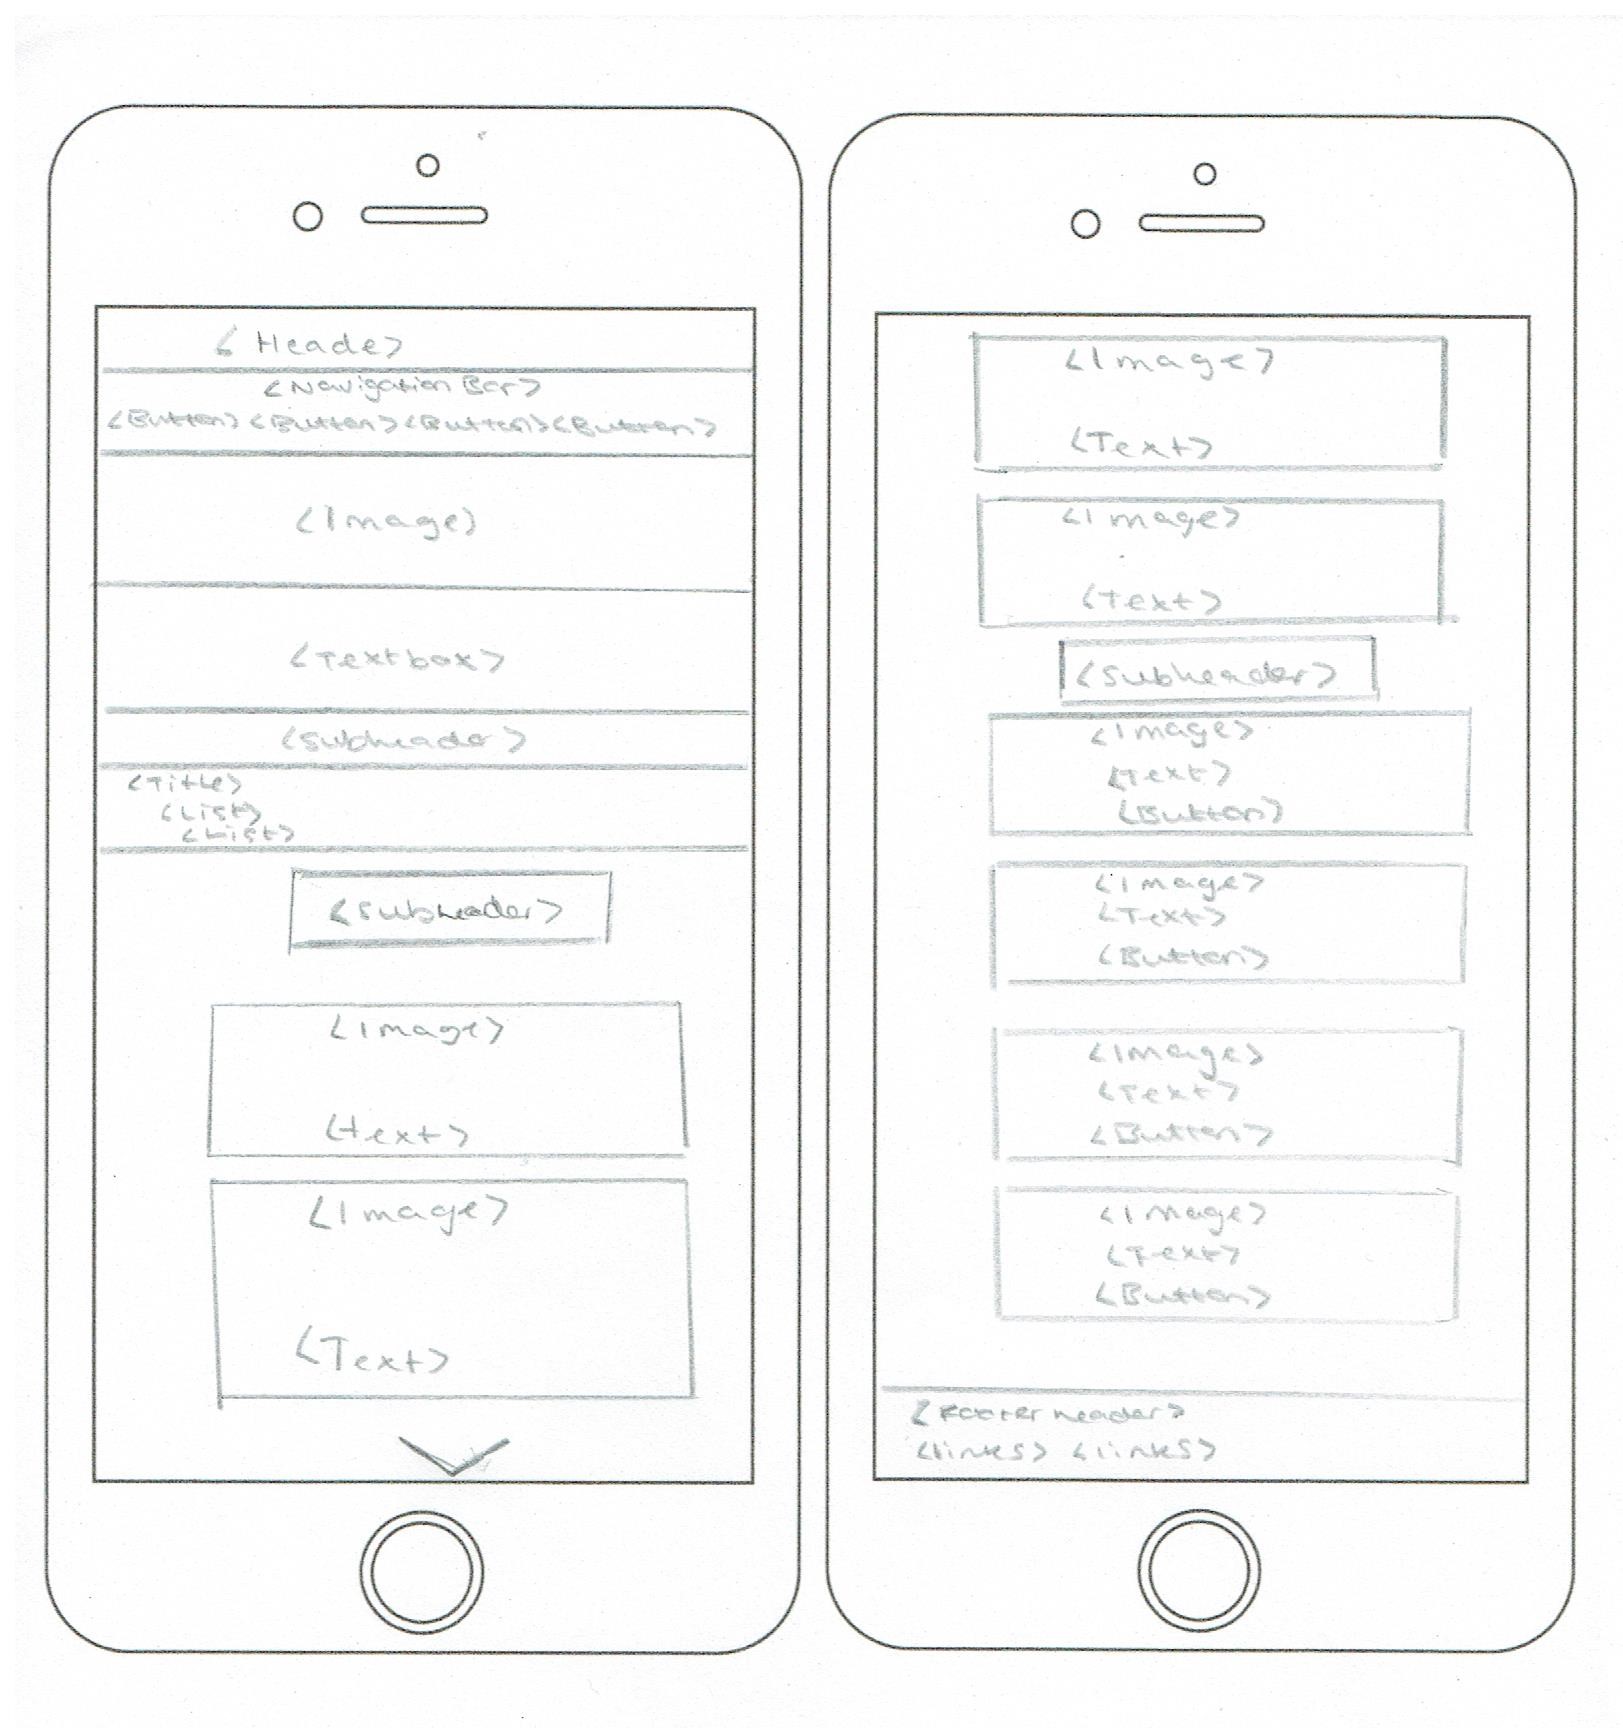 < Heade>
<Navigation Bar>
<Button> <Button> <Button> <Button>
<Image>
<Textbox>
<Subheader>
<Title>
<List>
<List>
<Subheader>
<Image>
<text>
<Image>
<Text>
<Image>
<Text>
<Image>
<Text>
<Subheader>
<Image>
<Text>
<Button>
<Image>
<Text>
<Button>
<Image>
<Text>
<Button>
<Image>
<Text>
<Button>
<Footer header>
<links> <links>